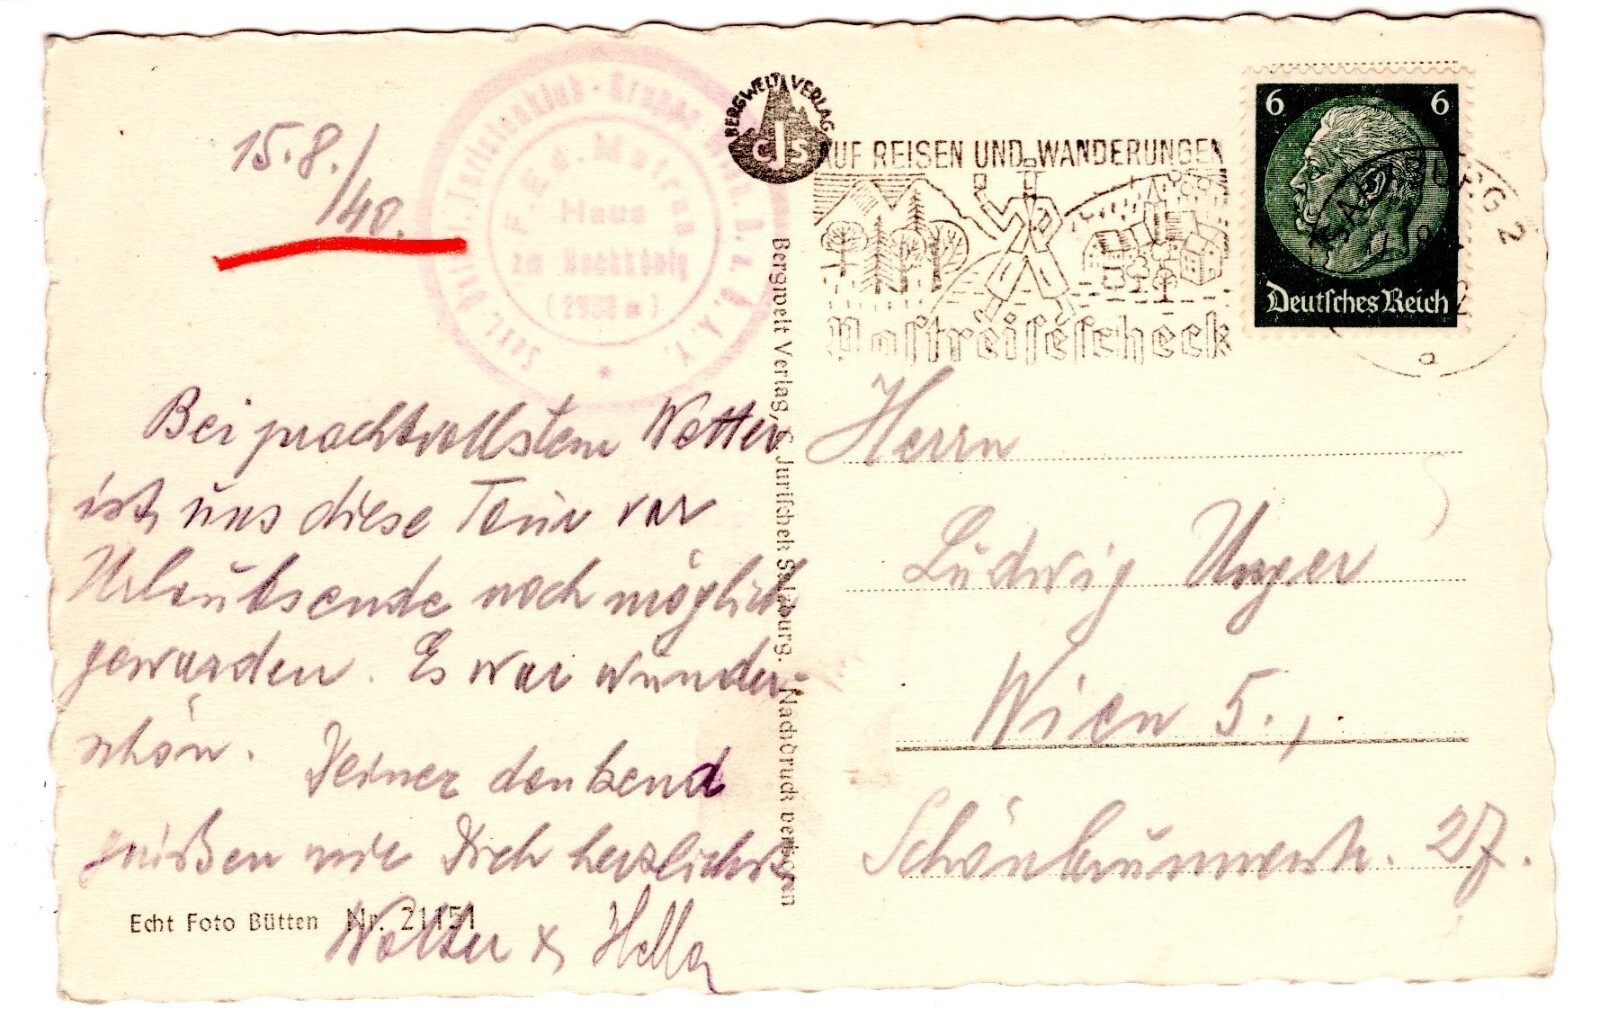 15.8./40.
Sekt. Öst. Touristenklub - Gruppe Wien d. D. A. V.
F. Ed. Matras
Haus
am Hochkönig
(2938 m)
*
Bei prachtvollstem Wetter
ist uns diese Tour vor
Urlaubsende noch möglich
geworden. Es war wunder-
schön. Deiner denkend
grüßen wir Dich herzlichst
Walter & Hella
Echt Foto Bütten Nr. 21151
BERGWELT VERLAG
CJS
Bergwelt Verlag, C. Jurischek Salzburg. Nachdruck verboten
AUF REISEN UND WANDERUNGEN
Postreisescheck
6 6
Deutsches Reich
SALZBURG 2
a
Herrn
Ludwig Unger
Wien 5.,
Schönbrunnerstr. 27.